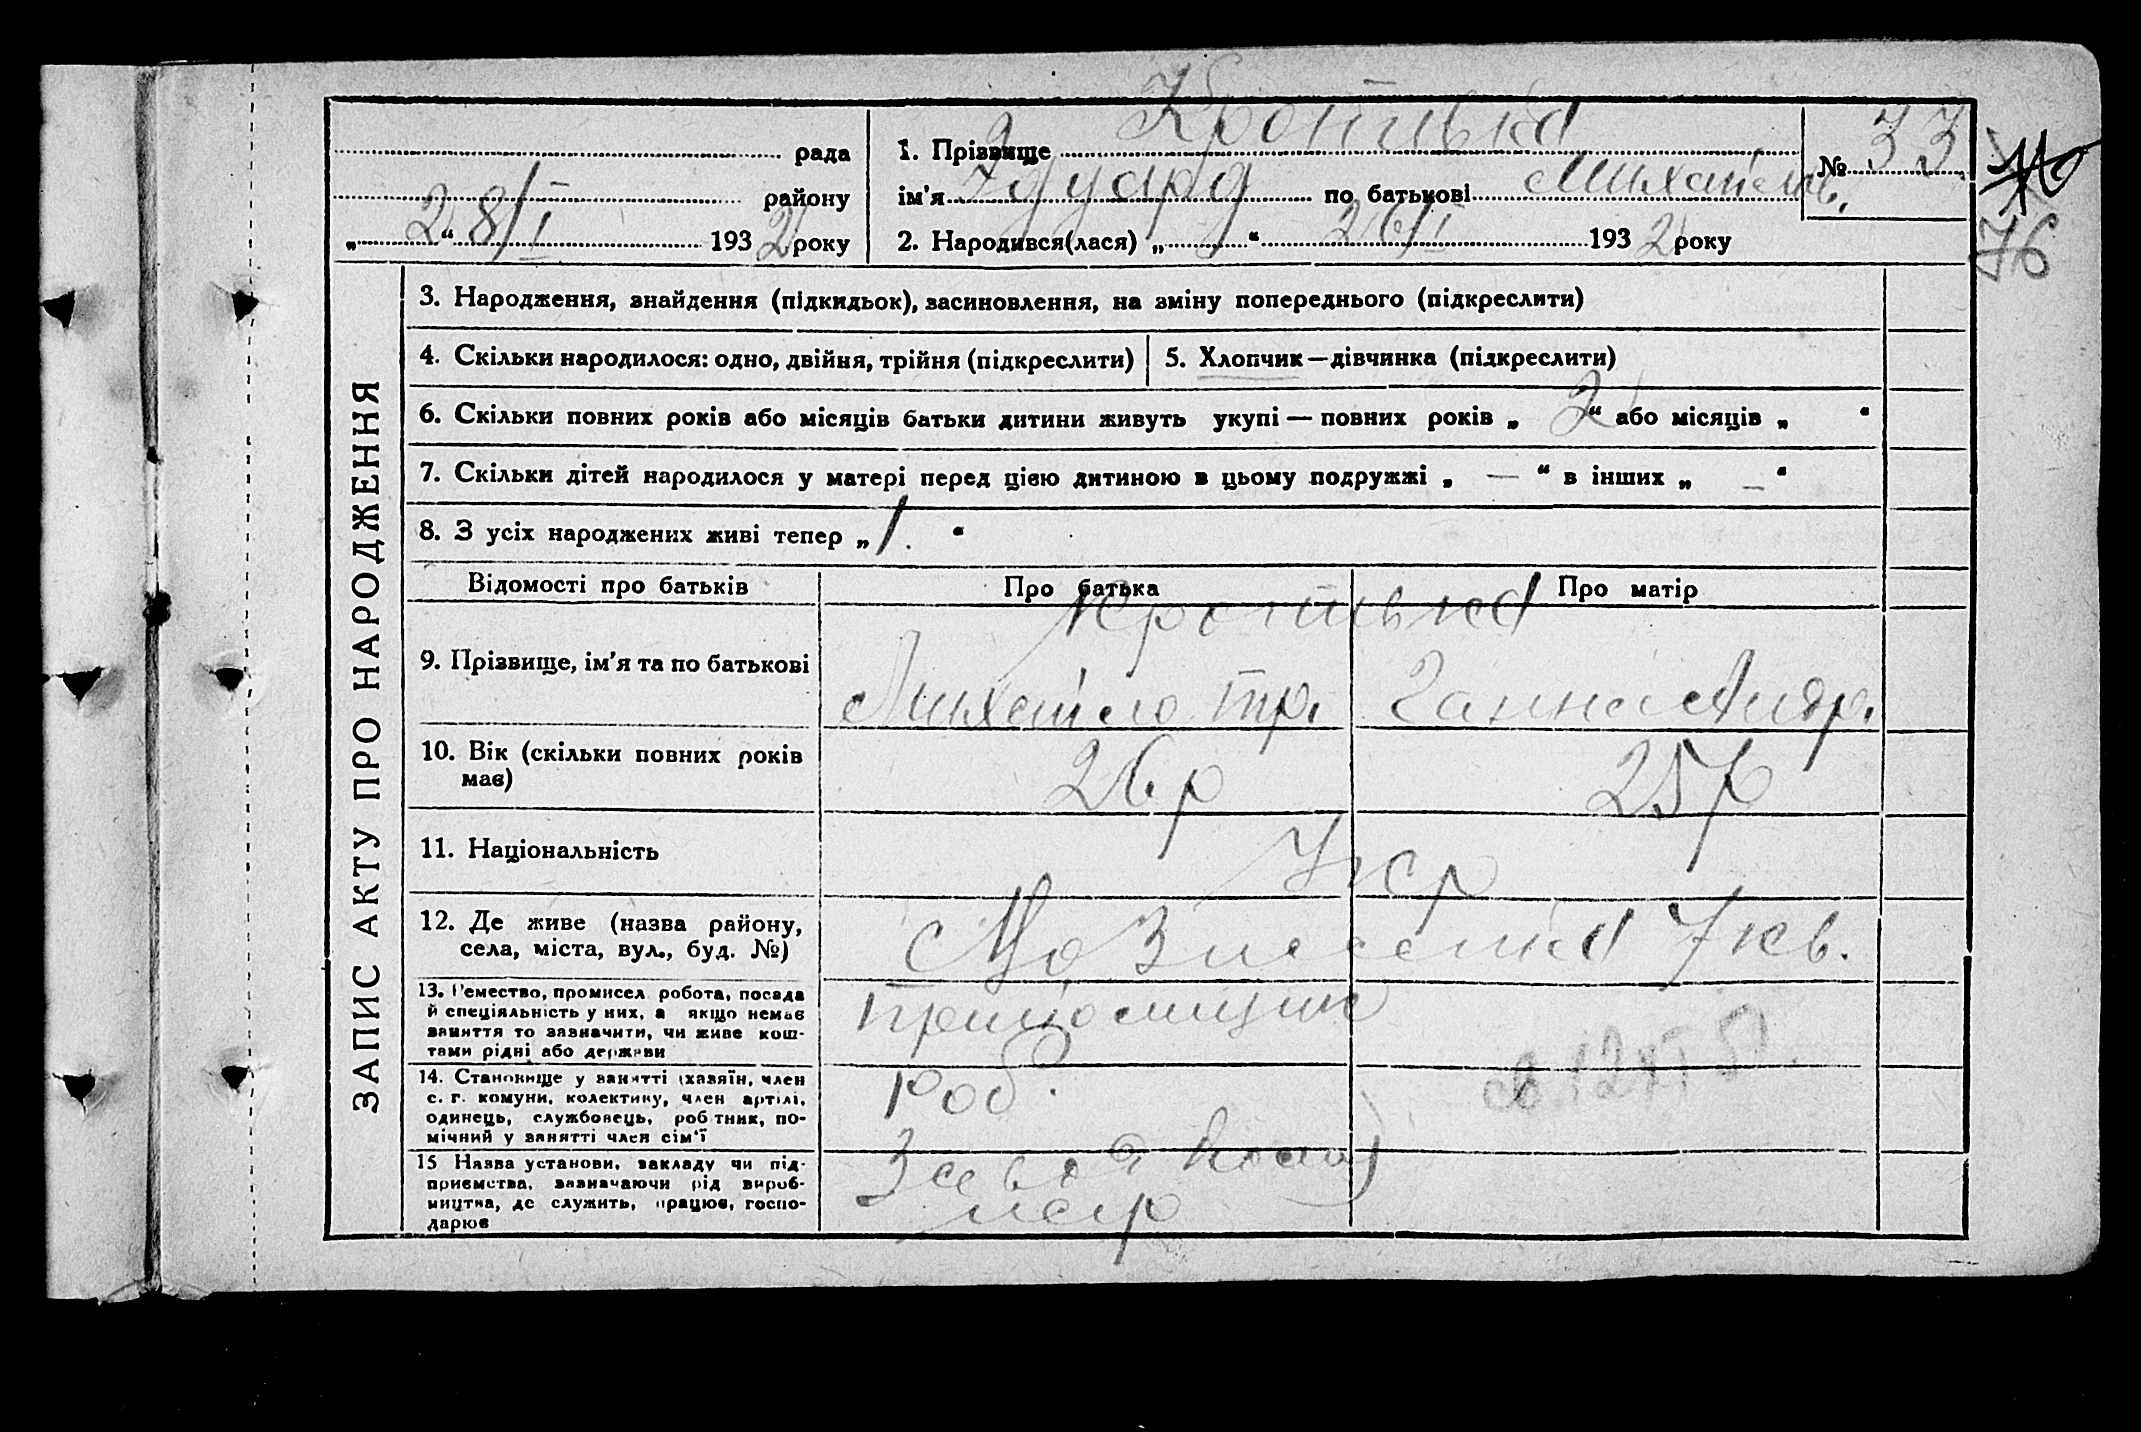 Кропивка
рада
1. Прізвище
№ 33
76
району
ім'я Едуард по батькові Михайлов.
„ 28/I “ 1932 року
2. Народився(лася) „ “ 26/I 1932 року
ЗАПИС АКТУ ПРО НАРОДЖЕННЯ
3. Народження, знайдення (підкидьок), засиновлення, на зміну попереднього (підкреслити)
4. Скільки народилося: одно, двійня, трійня (підкреслити)
5. Хлопчик—дівчинка (підкреслити)
6. Скільки повних років або місяців батьки дитини живуть укупі — повних років „ 2 “ або місяців „ “
7. Скільки дітей народилося у матері перед цією дитиною в цьому подружжі „ — “ в інших „ — “
8. З усіх народжених живі тепер „ 1. “
Відомості про батьків
Про батька
Про матір
Кропивка
9. Прізвище, ім'я та по батькові
Михайло Гр.
Ганна Андр.
10. Вік (скільки повних років
має)
26 р
25 р
11. Національність
Укр
12. Де живе (назва району,
села, міста, вул., буд. №)
7 кв.
13. Ремество, промисел робота, посада
й спеціяльність у них, а якщо немає
заняття то зазначити, чи живе кош-
тами рідні або держави
Прийомщик
14. Становище у занятті (хазяїн, член
с. г. комуни, колективу, член артілі,
одинець, службовець, робітник, по-
мічний у занятті член сім'ї
Роб.
15 Назва установи, закладу чи під-
приємства, зазначаючи рід вироб-
ництва, де служить, працює, госпо-
дарює